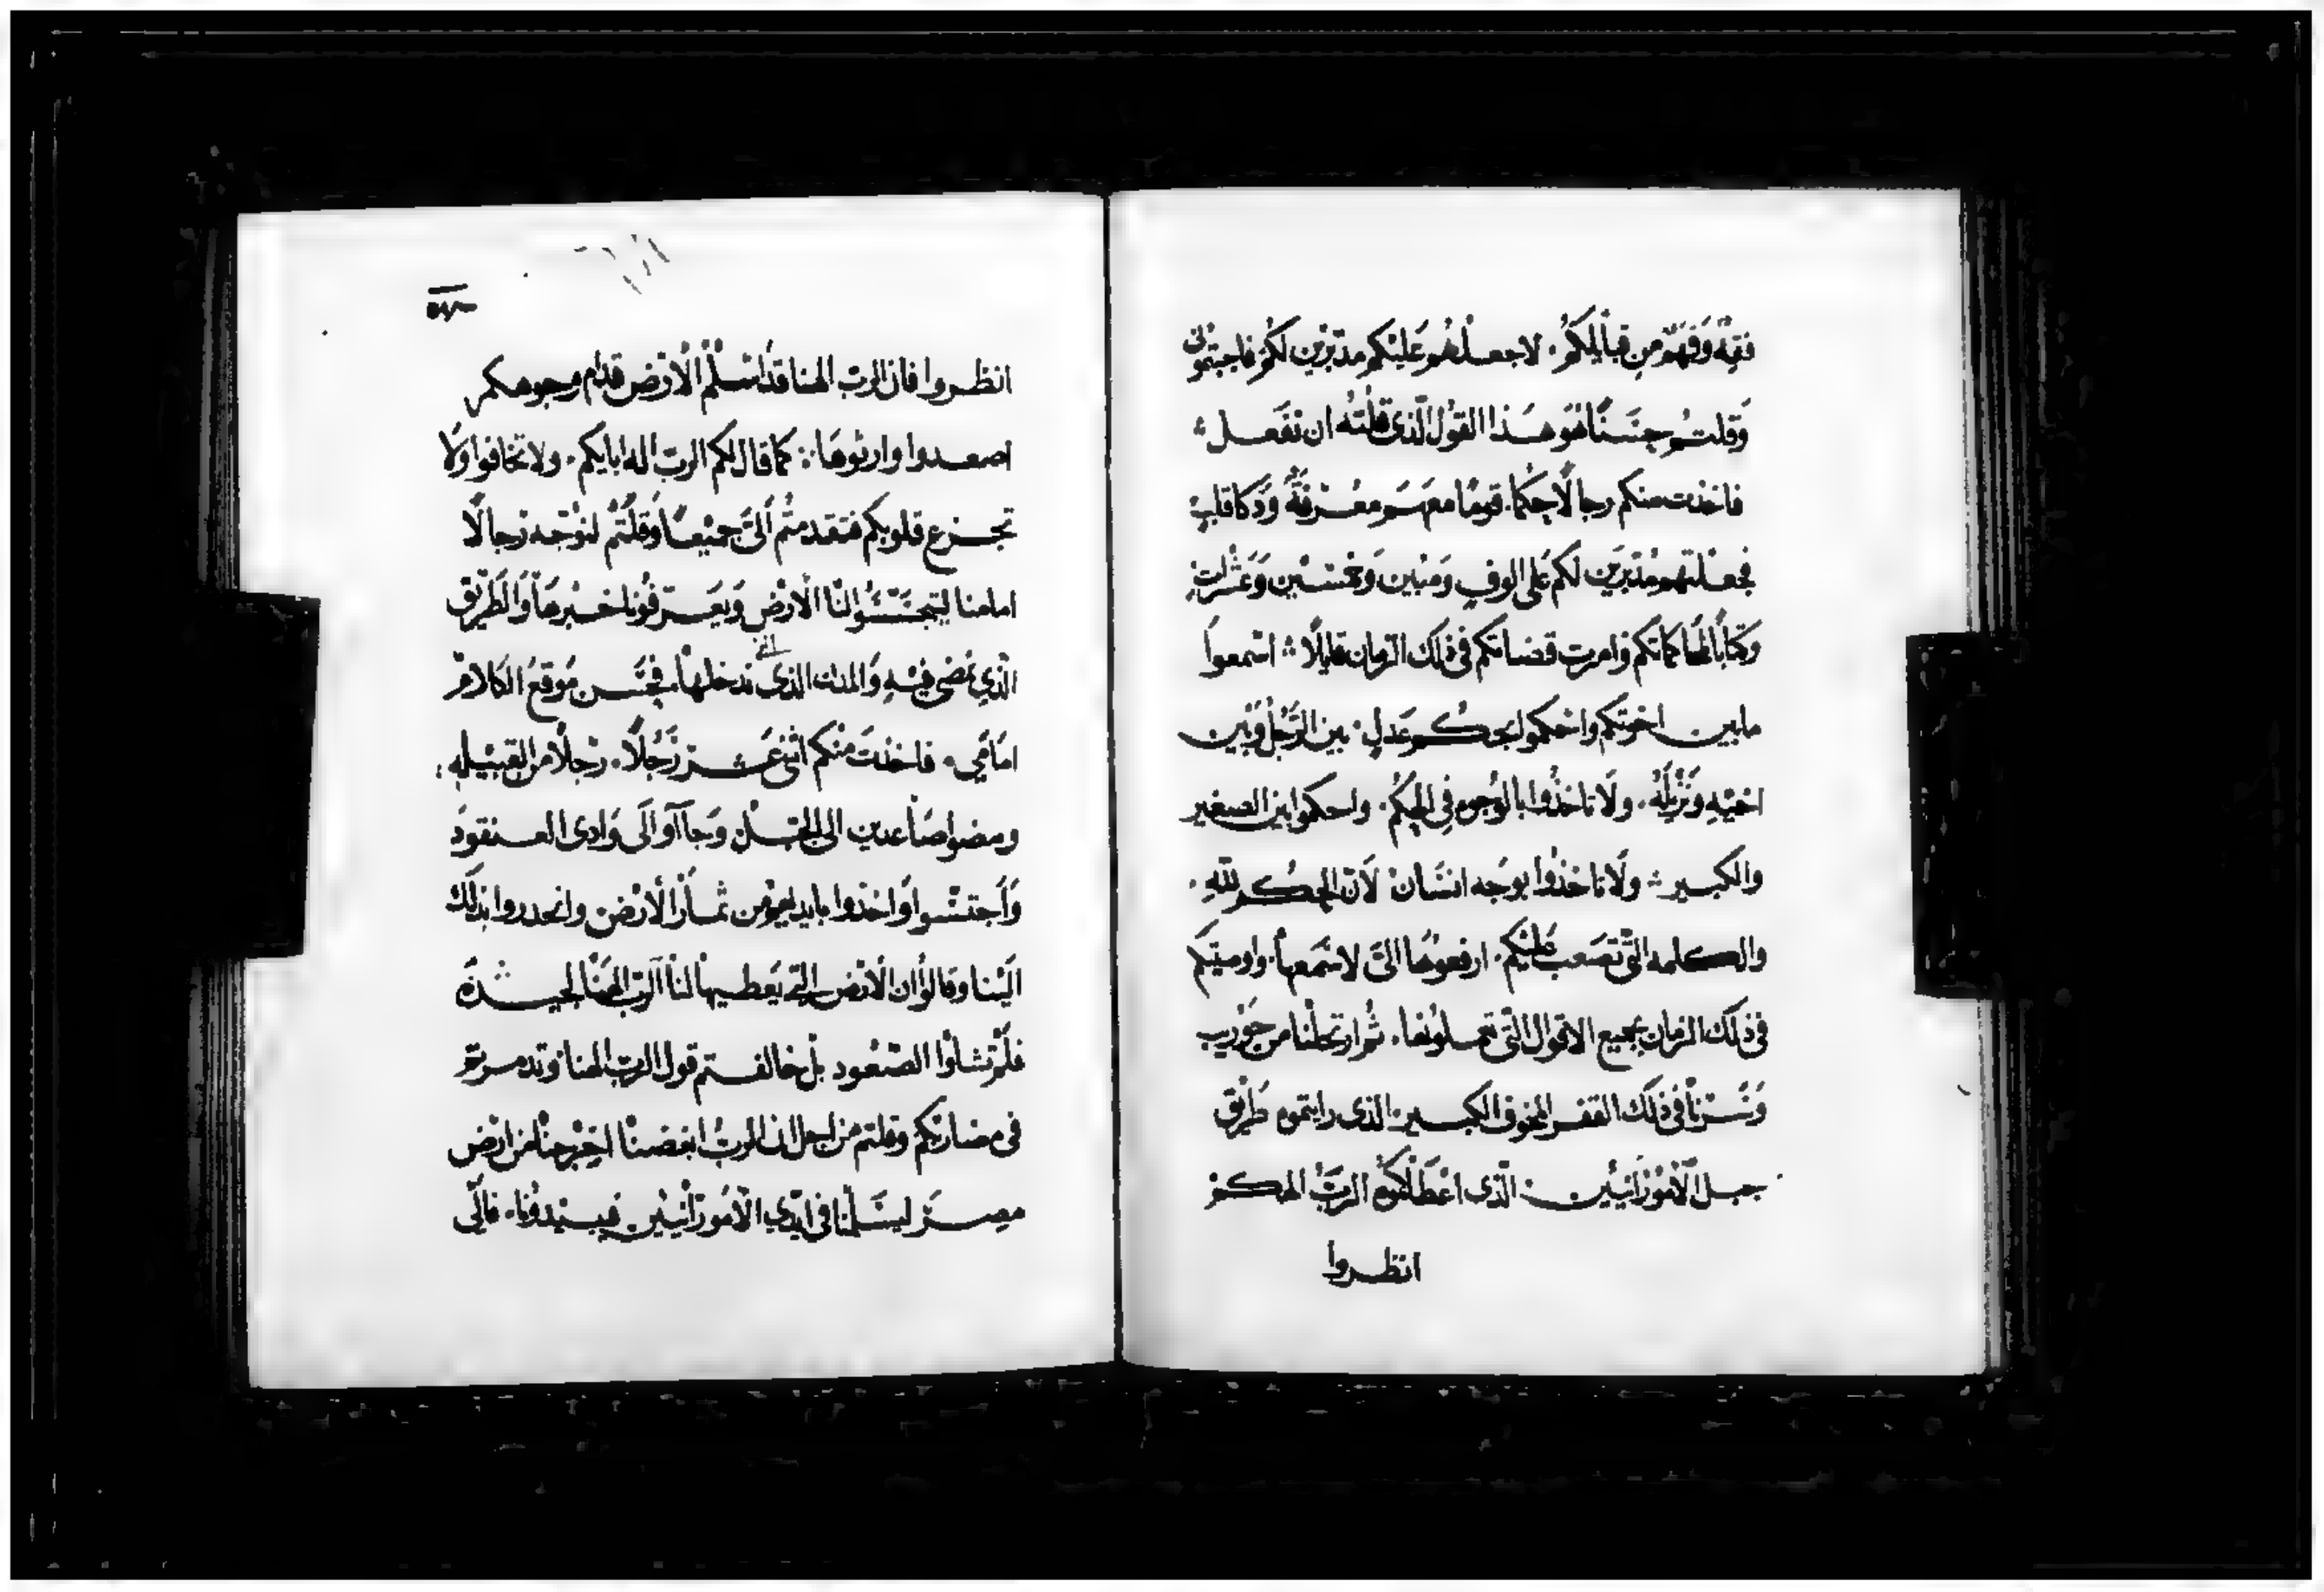 فقه وَفهَم من قبايلكم. لاجعلهم عليكم مدبرين لكم فاجبتموني
وَقلتم حسناً هُو هذا القول الّذى قلته ان نفعل
فاخذت منكم رجالاً حكما. قوماً معهم معرفة وذكا قلب
فجعلتهم مدبرين لكم على الوف ومئين وَخمسين وَعشرات
وَكتاباً لحكامكم وامرت قضاتكم فى ذلك الزمان قايلاً اسمعوا
مابين اخوتكم واحكموا بحكم عدل بين الرّجل وَبين
اخيه وَنزيله. ولا تاخذُوا بالوُجوه فِى الحكم. واحكموا بين الصغير
والكبير ولا تاخذُوا بوَجه انسَان لاَن الحكم لله.
والكلمه الّتى تصَعب عليكم. ارفعوهَا الىّ لاسَمعهاَ. واوصيتكم
فى ذلك الزمان بجميع الاقوال الّتى تعملونها. ثم ارتحلنا من حوريب
وَسرنا فى ذلك القفر المخوف الكبير الذى رايتموه طريق
جبل الاَموُرَانيين الّذى اعَطاكموه الربّ الهكم
انظروا
انظروا فان الربّ الهنا قد اسلم الاَرض قدام وجوهكم
اصعدوا وارثوهَا كما قال لكم الرب اله ابايكم. ولا تخافوا ولا
تجزع قلوبكم فتقدمتم الىَّ جميعاً وَقلتم لنوجه رجالاً
امامنا ليتجسَّسُوا لنا الاَرض وَيعَرفُونا خبرهَا وَالطريق
الّذِي نمضى فيه وَالمدن الذى التى ندخلها فحسن موقعُ الكلام
امَامي. فاخذتَ منكم اثنى عَشر رَجُلاً. رجلاً من القبيله
ومضوا صَاعدين الى الجبل وَجاآو الَى وَادى العنقود
وَاَجتسّوا وَاخذوا بايديهم من ثمار الاَرض وانحدروا بذلك
الَينا وقالوا ان الاَرض التى يَعطيها لنا الرّب الهنا لجيدة
فلم تشاوا الصّعُود بل خالفتم قول الرب الهنا وتدمرتم
فى مضاربكم وقلتم من اجل ان الربُّ ابغضنا اخِرجنا من ارض
مصر ليسَلمنا فى ايدِي الاَموُرَانيين فيبيدونا. فالى